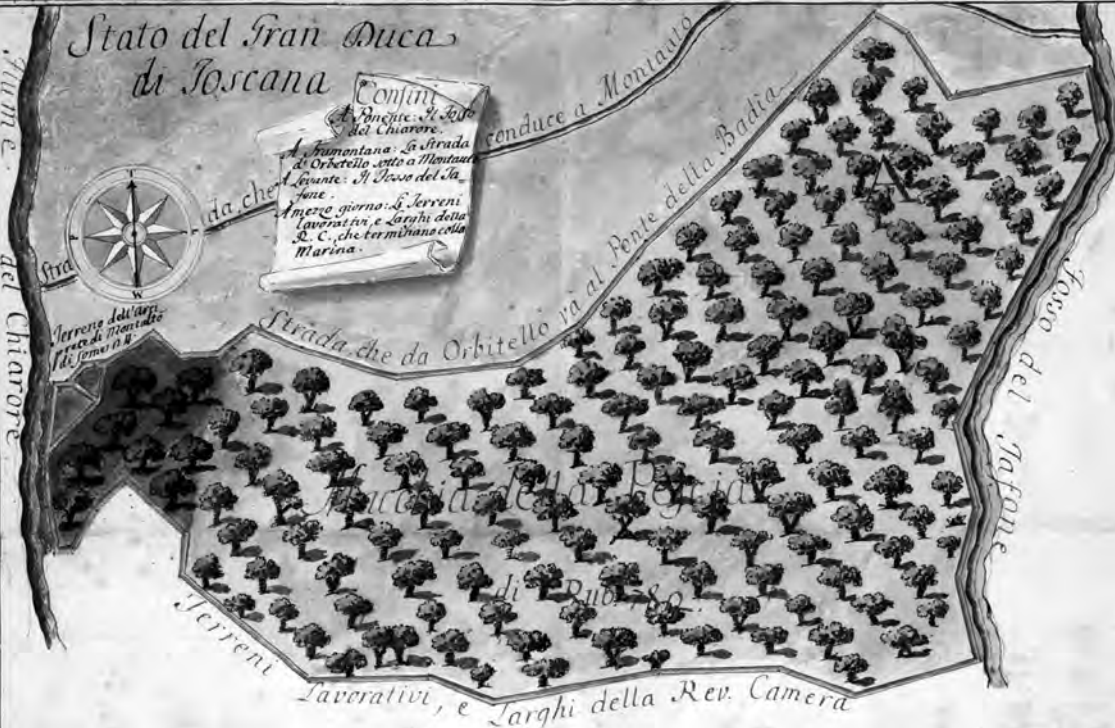 Stato del Gran Duca
di Toscana
Confini
A Ponente: Il Fosso
del Chiarore.
A Tramontana: La Strada
d'Orbetello sotto a Montauto
A Levante: Il Fosso del Ta=
fone.
A mezzo giorno: Li Terreni
lavorativi, e Larghi della
R. C., che terminano colla
Marina.
Strada, che conduce a Montauto
Strada, che da Orbitello và al Ponte della Badia
Terreno dell'Arci
prete di Montalto
di
Fiume del Chiarore
Fosso del Tafone
A
Macchia della Pescia
di Rub.
Terreni Lavorativi, e Larghi della Rev. Camera
T
W